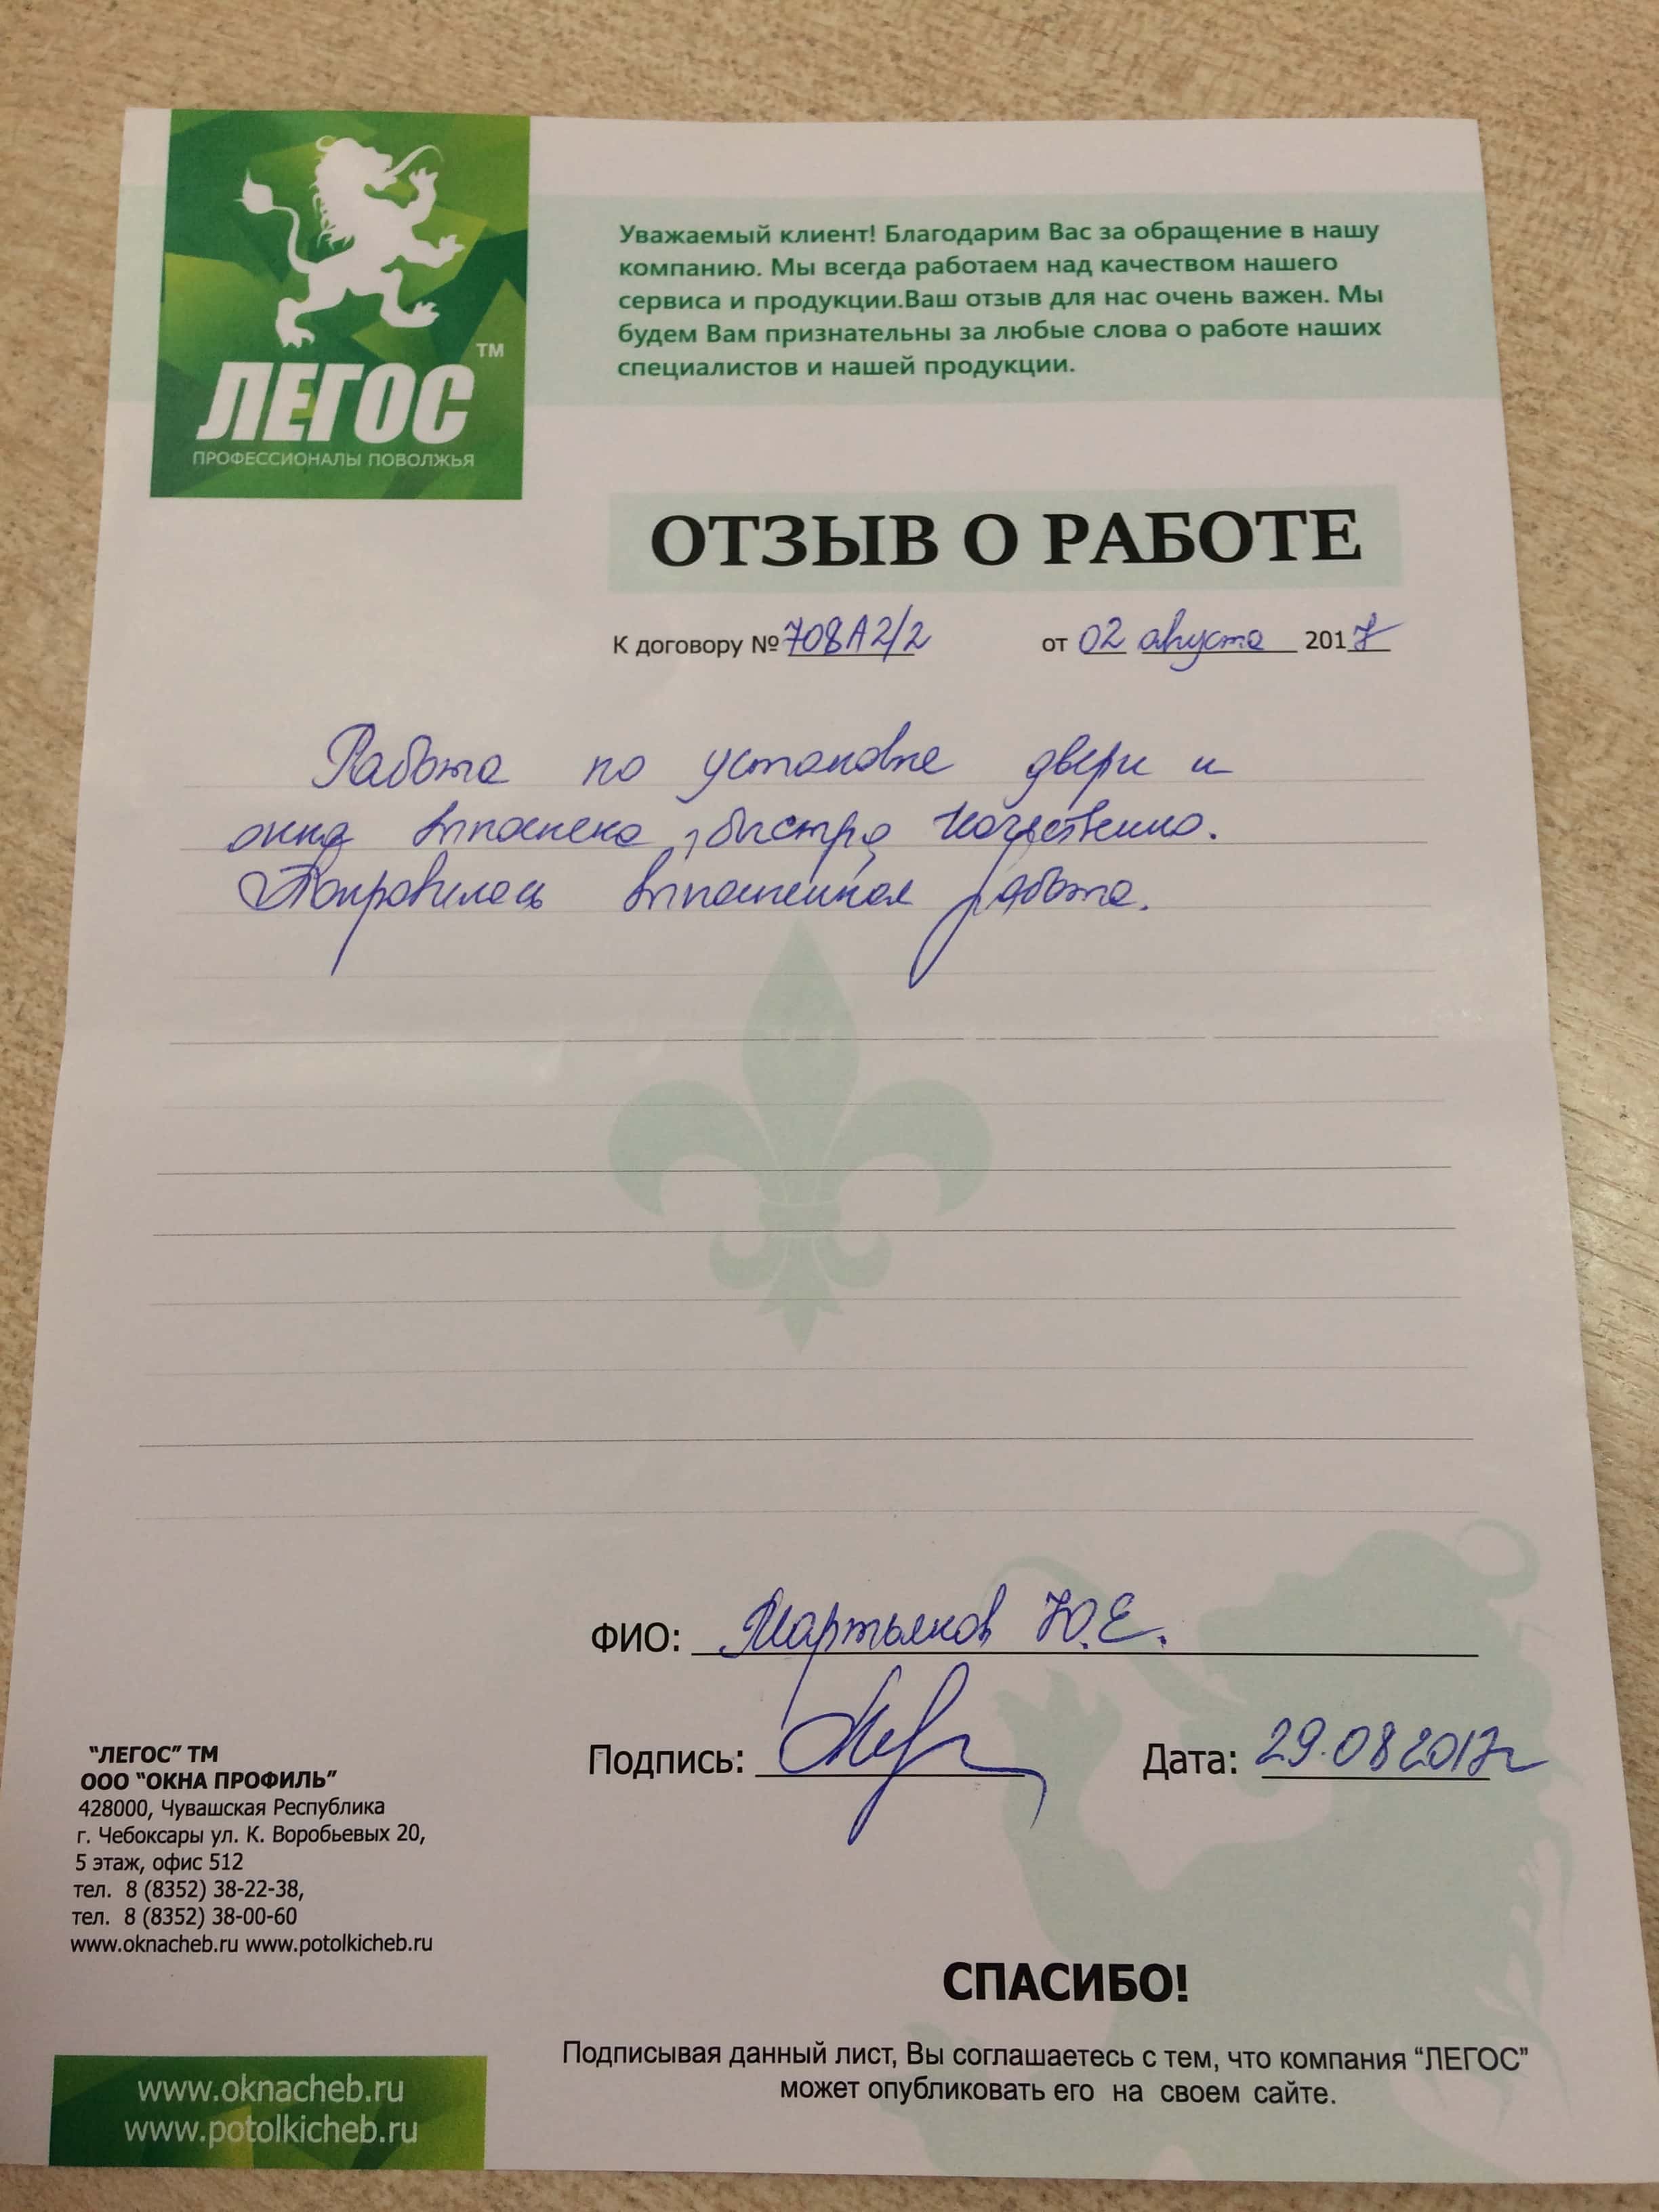 ЛЕГОС™
ПРОФЕССИОНАЛЫ ПОВОЛЖЬЯ
Уважаемый клиент! Благодарим Вас за обращение в нашу
компанию. Мы всегда работаем над качеством нашего
сервиса и продукции.Ваш отзыв для нас очень важен. Мы
будем Вам признательны за любые слова о работе наших
специалистов и нашей продукции.
ОТЗЫВ О РАБОТЕ
К договору № 708А2/2 от 02 августа 2017
Работа по установке двери и
окна выполнена, быстро, качественно.
Понравилась выполненная работа.
ФИО: Мартьянов Ю.Е.
Подпись: Дата: 29.08 2017г
"ЛЕГОС" ТМ
ООО "ОКНА ПРОФИЛЬ"
428000, Чувашская Республика
г. Чебоксары ул. К. Воробьевых 20,
5 этаж, офис 512
тел. 8 (8352) 38-22-38,
тел. 8 (8352) 38-00-60
www.oknacheb.ru www.potolkicheb.ru
СПАСИБО!
Подписывая данный лист, Вы соглашаетесь с тем, что компания "ЛЕГОС"
может опубликовать его на своем сайте.
www.oknacheb.ru
www.potolkicheb.ru